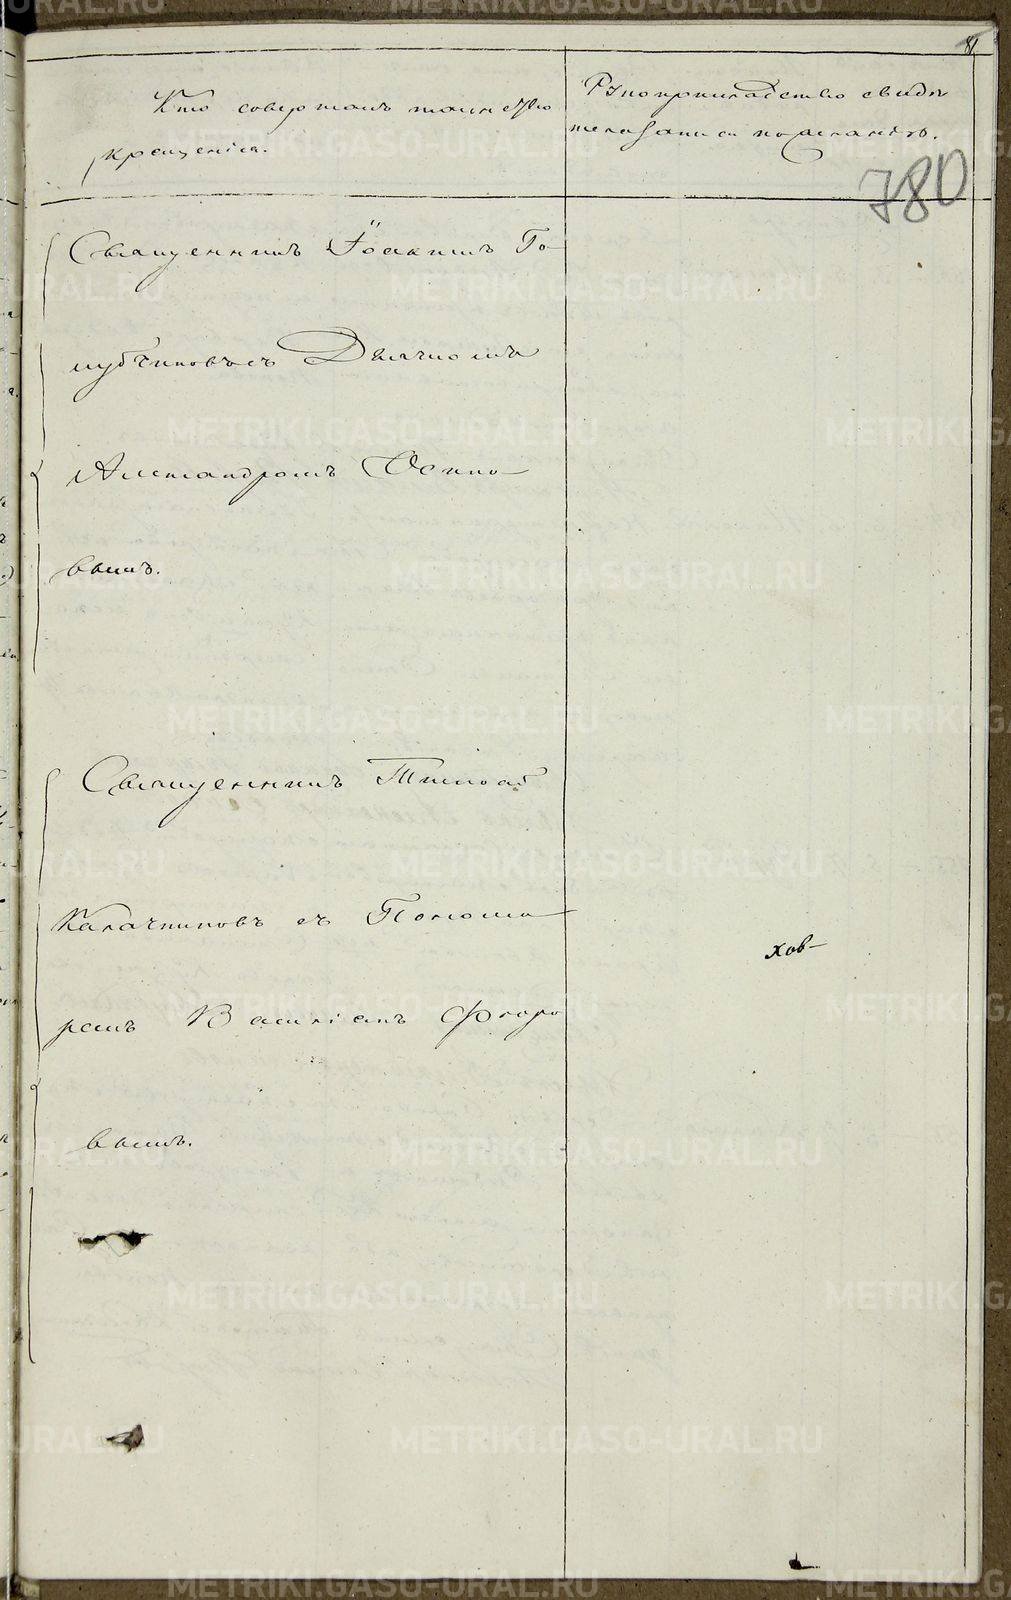 Кто совершалъ таинство
крещенія.
Рукоприкладство свидѣ
телей записи по желанію.
780
Священникъ Іоакимъ Го-
лубчиковъ съ Дьячкомъ
Александромъ Осипо-
вымъ.
Священникъ Тимоѳей
Калачниковъ съ Понома-
ремъ Василіемъ Флоро
вымъ.
хов-
METRIKI.GASO-URAL.RU